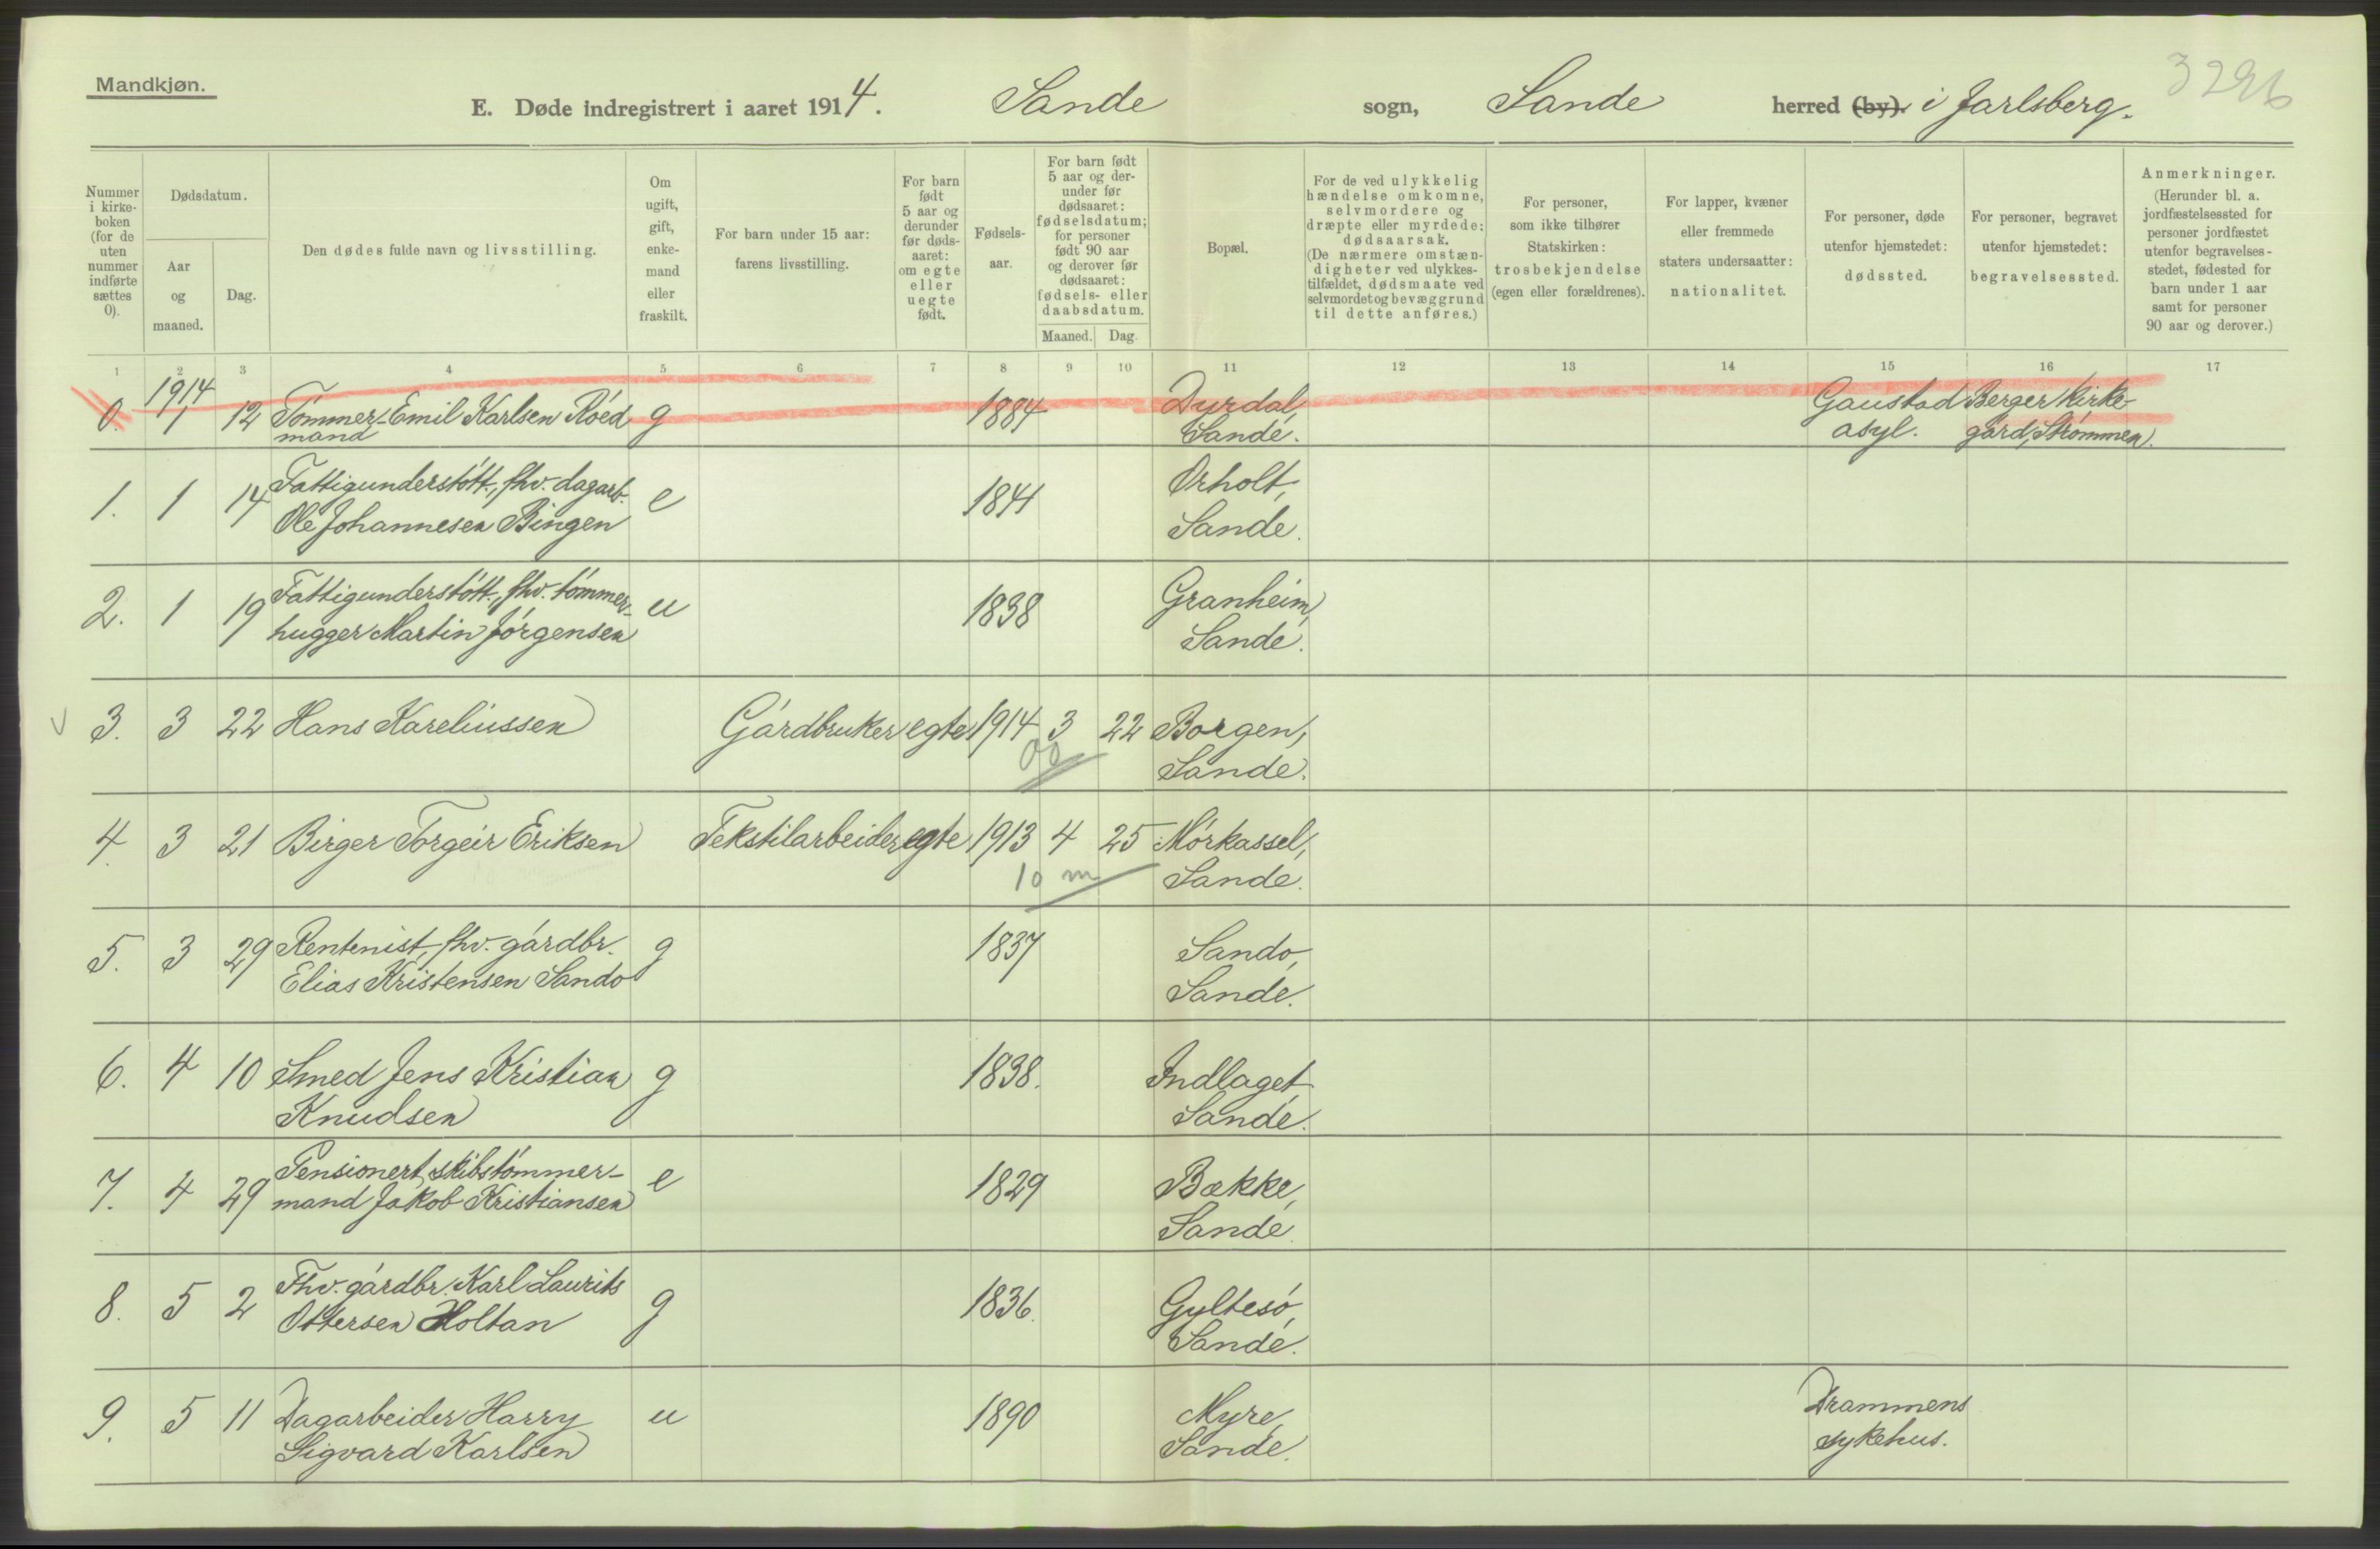 Mandkjøn.
E. Døde indregistrert i aaret 1914. Sande sogn, Sande herred (by). i Jarlsberg.
Nummer i kirke-boken (for de uten nummer indførte sættes 0).
Dødsdatum.
Aar og maaned.
Dag.
Den dødes fulde navn og livsstilling.
Om ugift, gift, enke-mand eller fraskilt.
For barn under 15 aar: farens livsstilling.
For barn født 5 aar og derunder før døds-aaret: om egte eller uegte født.
Fødsels-aar.
For barn født 5 aar og der-under før dødsaaret: fødselsdatum; for personer født 90 aar og derover før dødsaaret: fødsels- eller daabsdatum.
Maaned. Dag.
Bopæl.
For de ved ulykkelig hændelse omkomne, selvmordere og dræpte eller myrdede: dødsaarsak. (De nærmere omstæn-digheter ved ulykkes-tilfældet, dødsmaate ved selvmordet og bevæggrund til dette anføres.)
For personer, som ikke tilhører Statskirken: trosbekjendelse (egen eller forældrenes).
For lapper, kvæner eller fremmede staters undersaatter: nationalitet.
For personer, døde utenfor hjemstedet: dødssted.
For personer, begravet utenfor hjemstedet: begravelsessted.
Anmerkninger. (Herunder bl. a. jordfæstelsessted for personer jordfæstet utenfor begravelses-stedet, fødested for barn under 1 aar samt for personer 90 aar og derover.)
1 2 3 4 5 6 7 8 9 10 11 12 13 14 15 16 17
1914
0. 1 12 Tømmer- Emil Karlsen Röed g 1884 Dyrdal, Gaustad Berger Kirke-
mand Sande. asyl. gård, Strømmen.
1. 1 14 Fattigunderstött., fhv. dagarb. e 1841 Orholt,
Ole Johannesen Bingen Sande.
2. 1 19 Fattigunderstött., fhv. tömmer- u 1838 Granheim,
hugger Martin Jörgensen Sande.
3. 3 22 Hans Kareliussen Gårdbruker egte 1914 3 22 Borgen,
00 Sande.
4. 3 21 Birger Torgeir Eriksen Tekstilarbeider egte 1913 4 25 Mörkassel,
10 m Sande.
5. 3 29 Rentenist, fhv. gårdbr. g 1837 Sando,
Elias Kristensen Sando Sande.
6. 4 10 Smed Jens Kristian g 1838. Indlaget,
Knudsen Sande.
7. 4 29 Pensionert skibstömmer- e 1829 Bække,
mand Jakob Kristiansen Sande.
8. 5 2 Fhv. gårdbr. Karl Laurits g 1836. Gyltesö,
Ottersen Holtan Sande.
9. 5 11 Dagarbeider Harry u 1890 Myre, Drammens
Sigvard Karlsen Sande. sykehus.